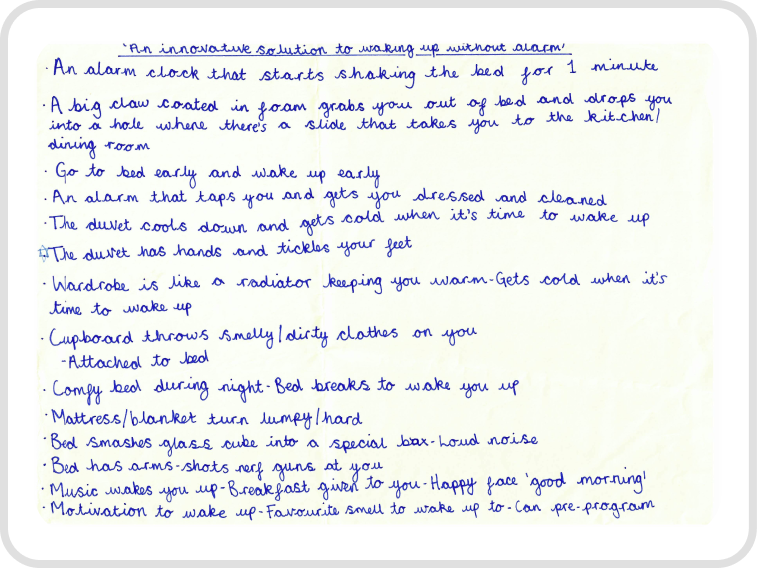 'An innovative solution to waking up without alarm'
· An alarm clock that starts shaking the bed for 1 minute
· A big claw coated in foam grabs you out of bed and drops you
into a hole where there's a slide that takes you to the kitchen/
dining room
· Go to bed early and wake up early
· An alarm that taps you and gets you dressed and cleaned
· The duvet cools down and gets cold when it's time to wake up
☆ The duvet has hands and tickles your feet
· Wardrobe is like a radiator keeping you warm-Gets cold when it's
time to wake up
· Cupboard throws smelly/dirty clothes on you
-Attached to bed
· Comfy bed during night-Bed breaks to wake you up
· Mattress/blanket turn lumpy/hard
· Bed smashes glass cube into a special box-Loud noise
· Bed has arms-shots nerf guns at you
· Music wakes you up-Breakfast given to you-Happy face 'good morning'
· Motivation to wake up-Favourite smell to wake up to-Can pre-program